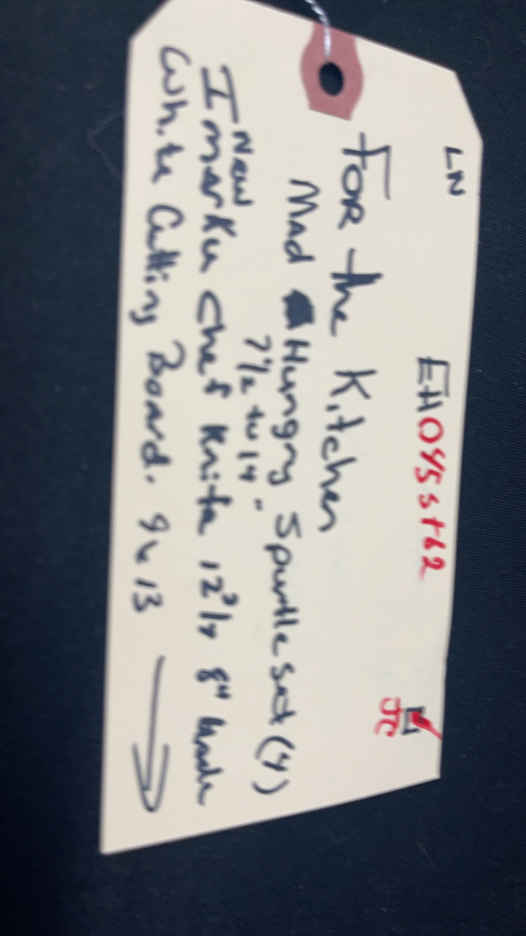 LN EH045st62
JC
FOR the Kitchen
Mad Hungry Spurtle Set (4)
7 1/2 to 14"
New
Imarku Chef Knife 12 3/4 8" blade
White Cutting Board. 9x13 →